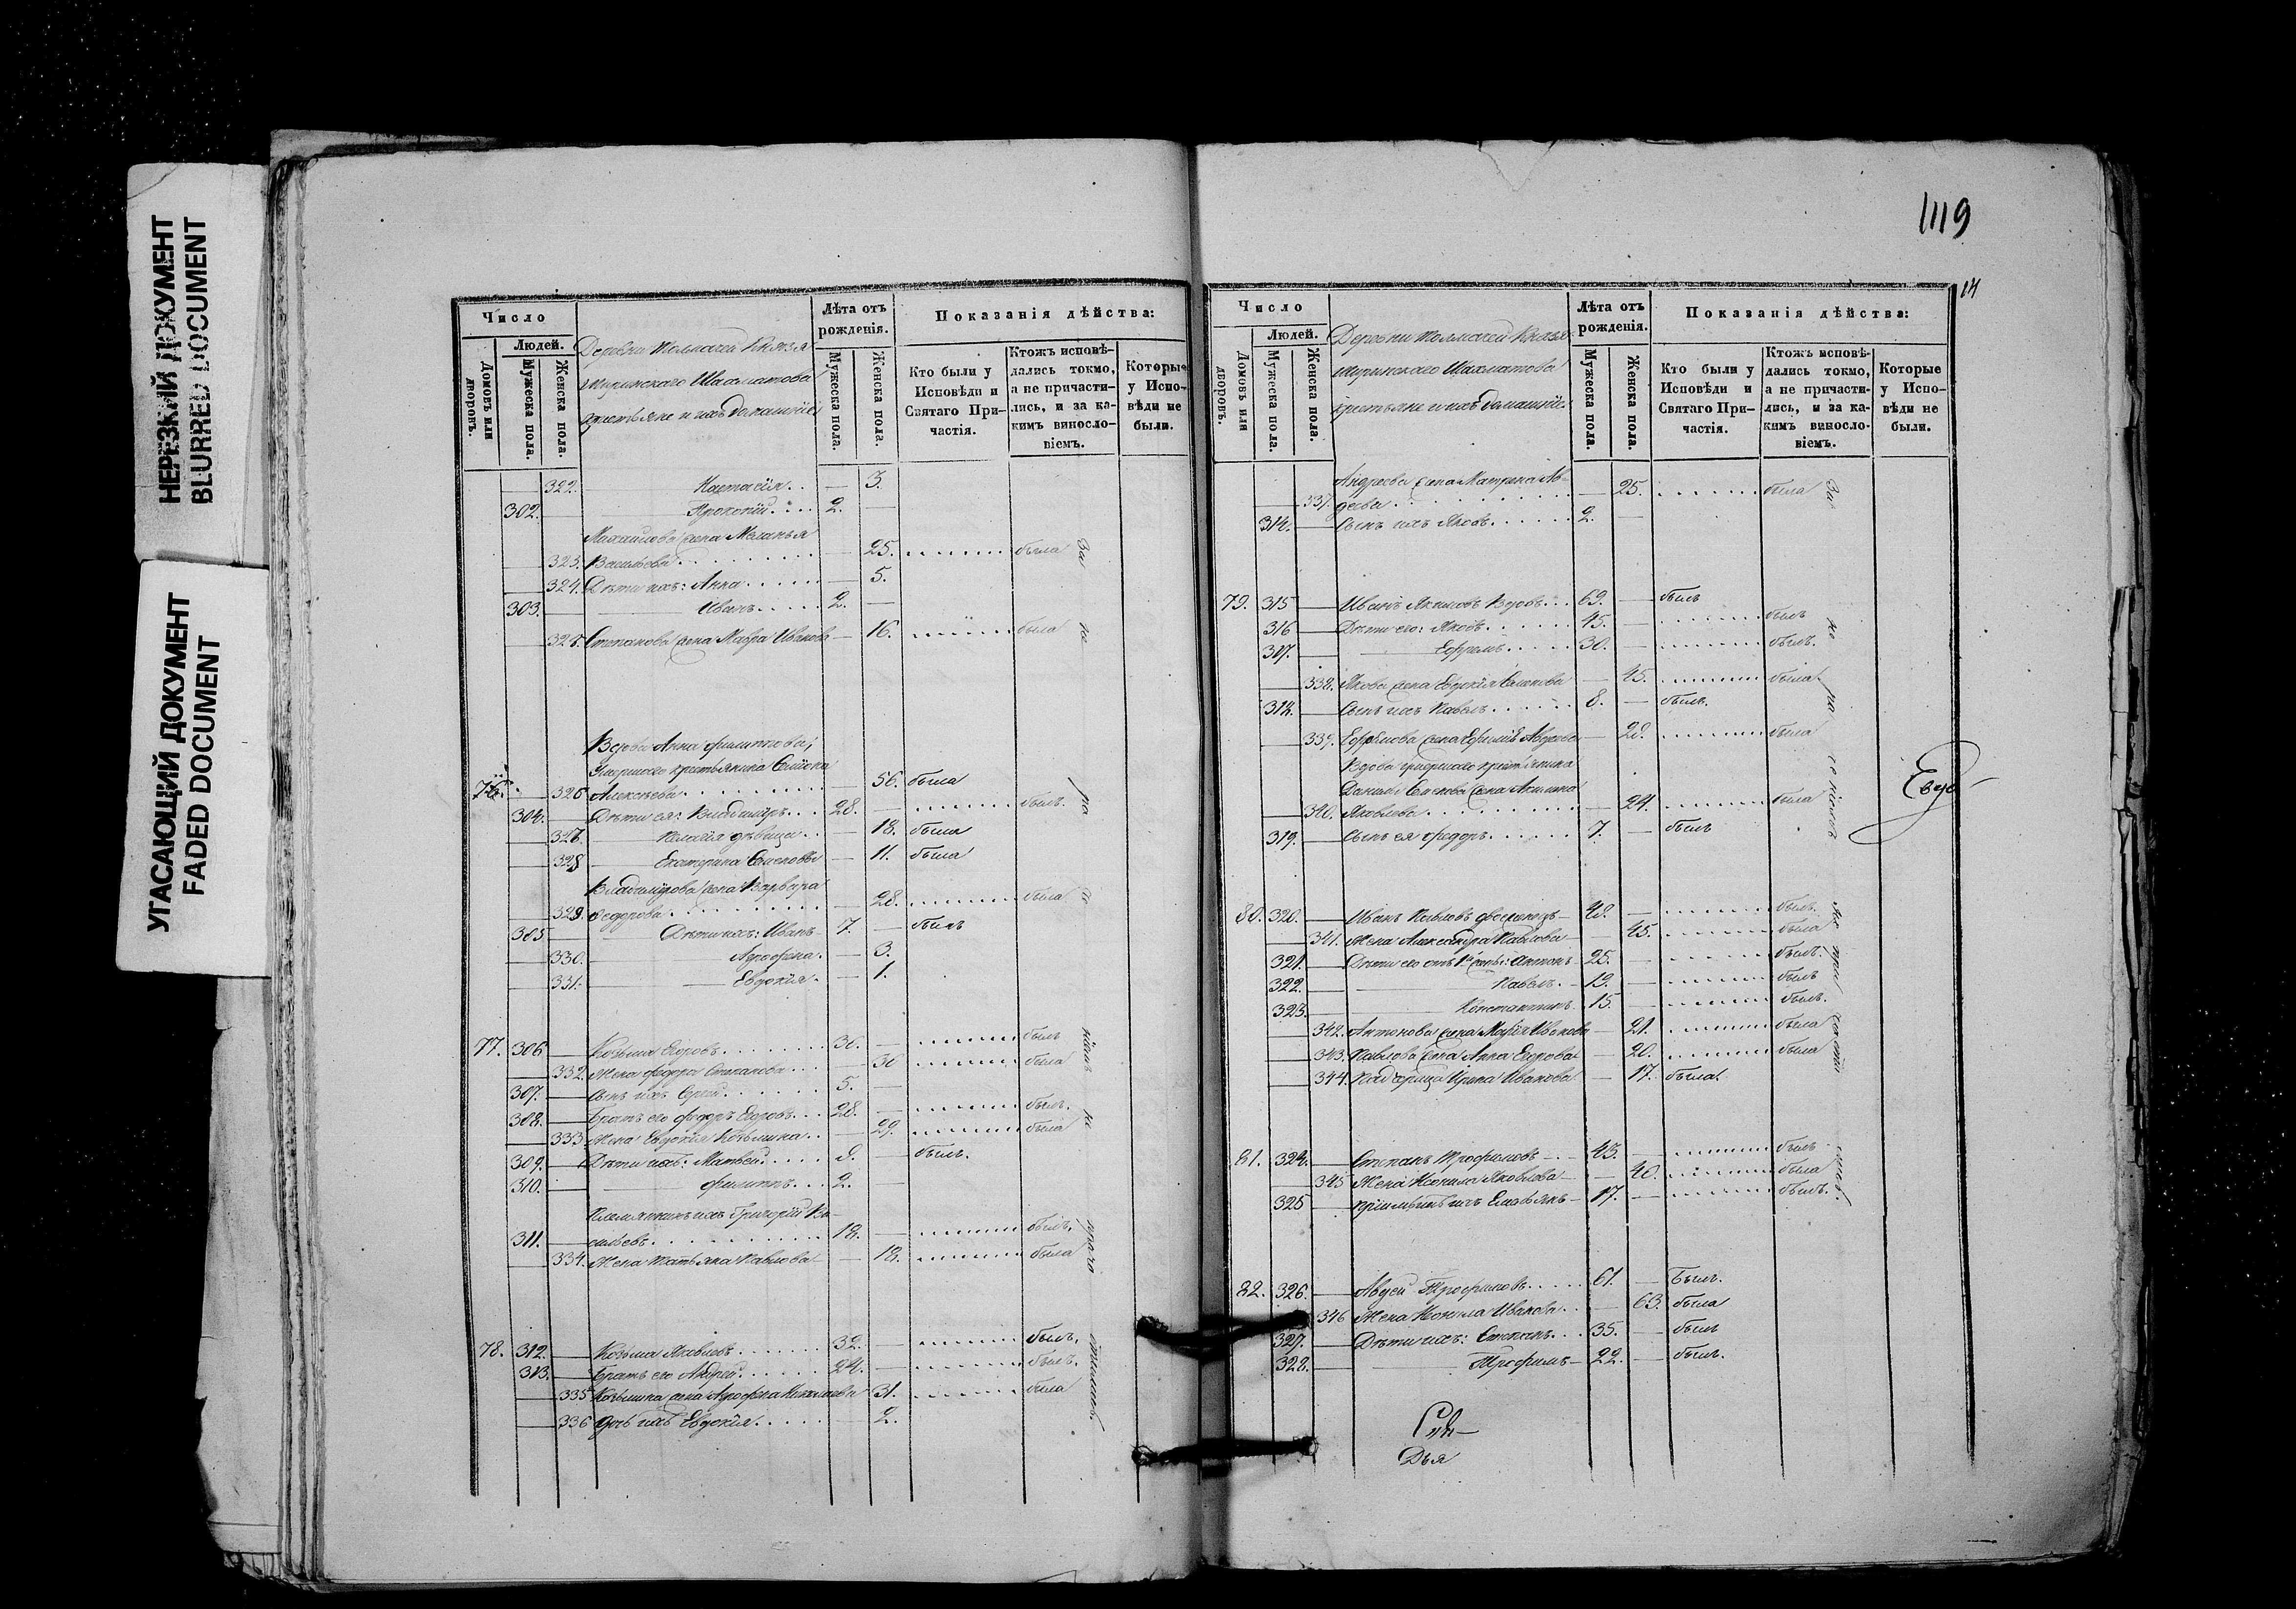 НЕРЕЗКИЙ ДОКУМЕНТ
BLURRED DOCUMENT
УГАСАЮЩИЙ ДОКУМЕНТ
FADED DOCUMENT
Число
Людей.
Домовъ или дворовъ.
Мужеска пола.
Женска пола.
Деревни Толмачей Князя
Ширинскаго Шахматова
крестьяне и ихъ домашніе
Лѣта отъ рожденія.
Мужеска пола.
Женска пола.
Показанія дѣйства:
Кто были у Исповѣди и Святаго Причастія.
Ктожъ исповѣдались токмо, а не причастились, и за какимъ винословіемъ.
Которые у Исповѣди не были.
322. Настасія . . — 3.
302. Прокопій . . . . 2. —
Михаилова жена Меланья
323. Васильева . . . — 25. . . . . была
324. Дѣти ихъ: Анна . . . . . — 5.
303. Иванъ . . . . . 2. —
325. Степанова жена Мавра Иванова — 16. . . . . была
Вдова Анна Филиппова,
Умершаго крестьянина Семіона
76. 326 Алексѣева . . . 56. была
304. Дѣти ея: Владиміръ . . . 28. — . . . . былъ.
327. Пелагія дѣвица . . — 18. была
328 Екатерина Семеновы — 11. была
Владимірова жена Варвара
329. Федорова . . . — 28. . . . . была
305 Дѣти ихъ: Иванъ 7. — былъ
330. Агрофена . — 3.
331. Евдокія . — 1.
77. 306 Козьма Егоровъ . . . 30. — . . . . былъ
332. Жена Федора Степанова . . . — 30 . . . . была
307. Сынъ ихъ Сергій . . . 5. —
308. Братъ его Федоръ Егоровъ . . . 28. — . . . . былъ.
333 Жена Евдокія Козьмина . . — 29. . . . . была
309. Дѣти ихъ: Матвей . . . . . 8. — былъ.
310. Филиппъ . . . 2. —
Племянникъ ихъ Григорій Ва-
311. сильевъ . . . 18. — . . . . былъ,
334. Жена Татьяна Павлова — 18. . . . . была
78. 312. Козьма Яковлевъ . . . 32. — . . . . былъ,
313. Братъ его Андрей . . . 24. — . . . . былъ,
335 Козьмина жена Агрофена Николаева 31. . . . . была
336 дочь ихъ Евдокія . . . . . — 2.
1119
14
Число
Людей.
Домовъ или дворовъ.
Мужеска пола.
Женска пола.
Деревни Толмачей Князя
Ширинскаго Шахматова
крестьяне и ихъ домашніе.
Лѣта отъ рожденія.
Мужеска пола.
Женска пола.
Показанія дѣйства:
Кто были у Исповѣди и Святаго Причастія.
Ктожъ исповѣдались токмо, а не причастились, и за какимъ винословіемъ.
Которые у Исповѣди не были.
Андреева жена Матрена Ав-
337. деева . . . — 25. . . . . была
314. Сынъ ихъ Яковъ . . . . . . 2. —
79. 315 Иванъ Якимовъ Вдовъ . . . 69. — былъ
316 Дѣти его: Яковъ . . . . . . 45. — . . . . былъ
317. Ефремъ . . . . . 30. — . . . . былъ.
338. Якова жена Евдокія Семенова — 45. . . . . была
318. Сынъ ихъ Павелъ . . . . . . 8. — былъ.
339. Ефремова жена Ефимія Авдеева — 28. . . . . была
Вдова умершаго крестьянина
Данила Семенова жена Акилина
340. Яковлева . . . — 24. . . . . была
319. Сынъ ея Федоръ . . . . . . 7. — былъ
80. 320. Иванъ Павловъ 48. — . . . . былъ.
341. Жена Александра Павлова — 45. . . . . была
321. Дѣти его отъ 1й жены: Антонъ 25. — . . . . былъ.
322. Павелъ . 19. — . . . . былъ
323. Константинъ 15. — . . . . былъ.
342. Антонова жена Марія Иванова — 21. . . . . была
343. Павлова жена Анна Егорова — 20. . . . . была
344. Падчерица Ирина Иванова — 17. была.
81. 324. Степанъ Трофимовъ — 43. — . . . . былъ
345 Жена Ненила Яковлева — 40. . . . . была
325 пріимышъ ихъ Емельянъ — 17. — . . . . былъ.
82. 326. Авдей Трофимовъ . . . . 61. — былъ.
346 Жена Ненила Иванова . . — 63. была
327. Дѣти ихъ: Степанъ . . . 35. — былъ
328. Трофимъ — 22. — былъ.
Дья